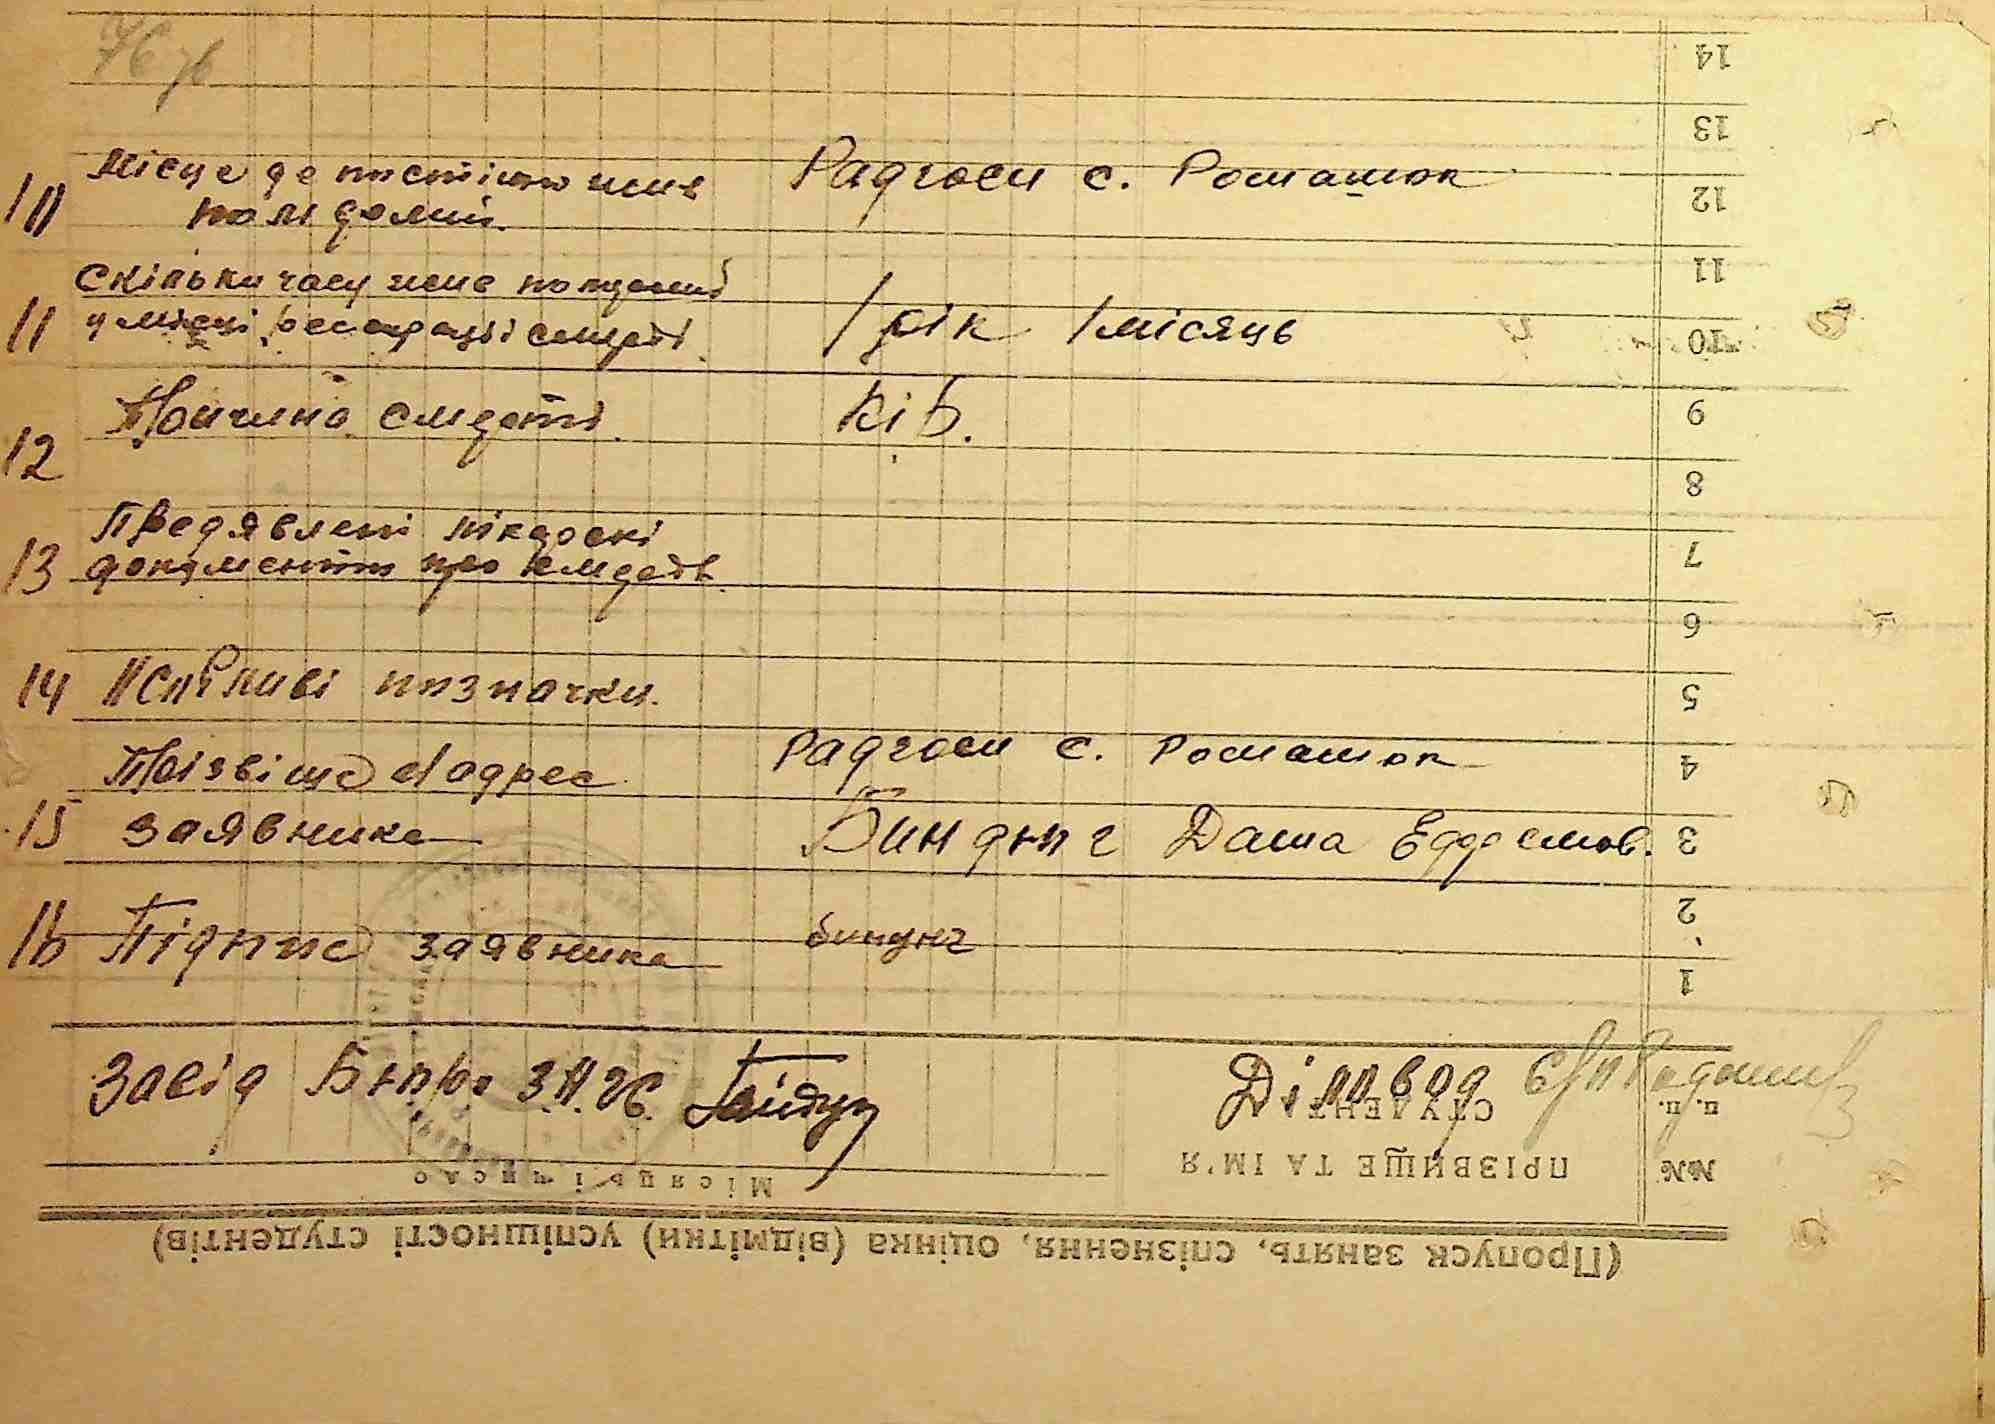 76 зв
10 Місце де постійно жив
помдомий.
Радгосп с. Ромашок
Скільки часу жив помдомий
11 у місці реєстрації смерті.
1 рік 1 місяць
12 Причина смерті.
Кір.
Предявлені лікарскі
13 документи про смерть.
14 Особливі позначки.
Прізвіще Адрес
15 заявника
Радгосп с. Ромашок
Биндюг Даша Ефремов.
16 Підпис заявника
биндюг
Завід Бюро ЗАГС.
Діловод
14
13
12
11
10
9
8
7
6
5
4
3
2
1
№№ п. п.
ПРІЗВИЩЕ ТА ІМ'Я
СТУДЕНТІВ
Місяць і число
(Пропуск занять, спізнення, оцінка (відмітки) успішності студентів)